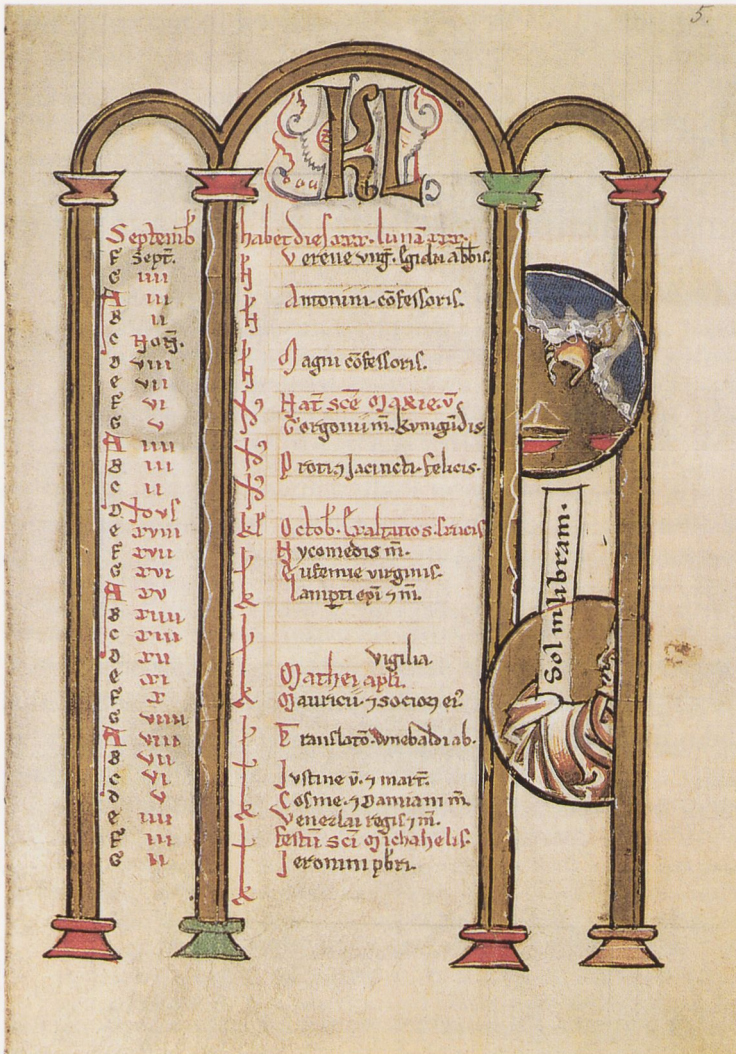 5.
KL
Septemb habet dies xxx. lunā xxx.
F Sept. Verene virg̅. Egidii abb̅is.
G iiii
A iii Antonini cōfessoris.
B ii
C Non̅.
D viii Magni cōfessoris.
E vii
F vi Nat̅ scē Marie. v̅.
G v Gorgonii m̅. Kunigūdis
A iiii
B iii Proti ⁊ Jacincti. felicis.
C ii
D Idus
E xviii kl Octob̅. Exaltatio s. crucis
F xvii Nycomedis m̅.
G xvi Eufemie virginis.
A xv Lamp̅ti ep̅i ⁊ m̅.
B xiiii
C xiii
D xii vigilia.
E xi Mathei apli.
F x Mauricii. ⁊ socior̅ ei⁹.
G viiii
A viii Translatō. Wnebaldi ab.
B vii
C vi Justine v̅. ⁊ mart̅.
D v Cosme. ⁊ Damiani m̅.
E iiii Venezlai regis ⁊ m̅.
F iii Festū Sc̅i Michahelis.
G ii Jeronimi p̅bri.
Sol in libram.